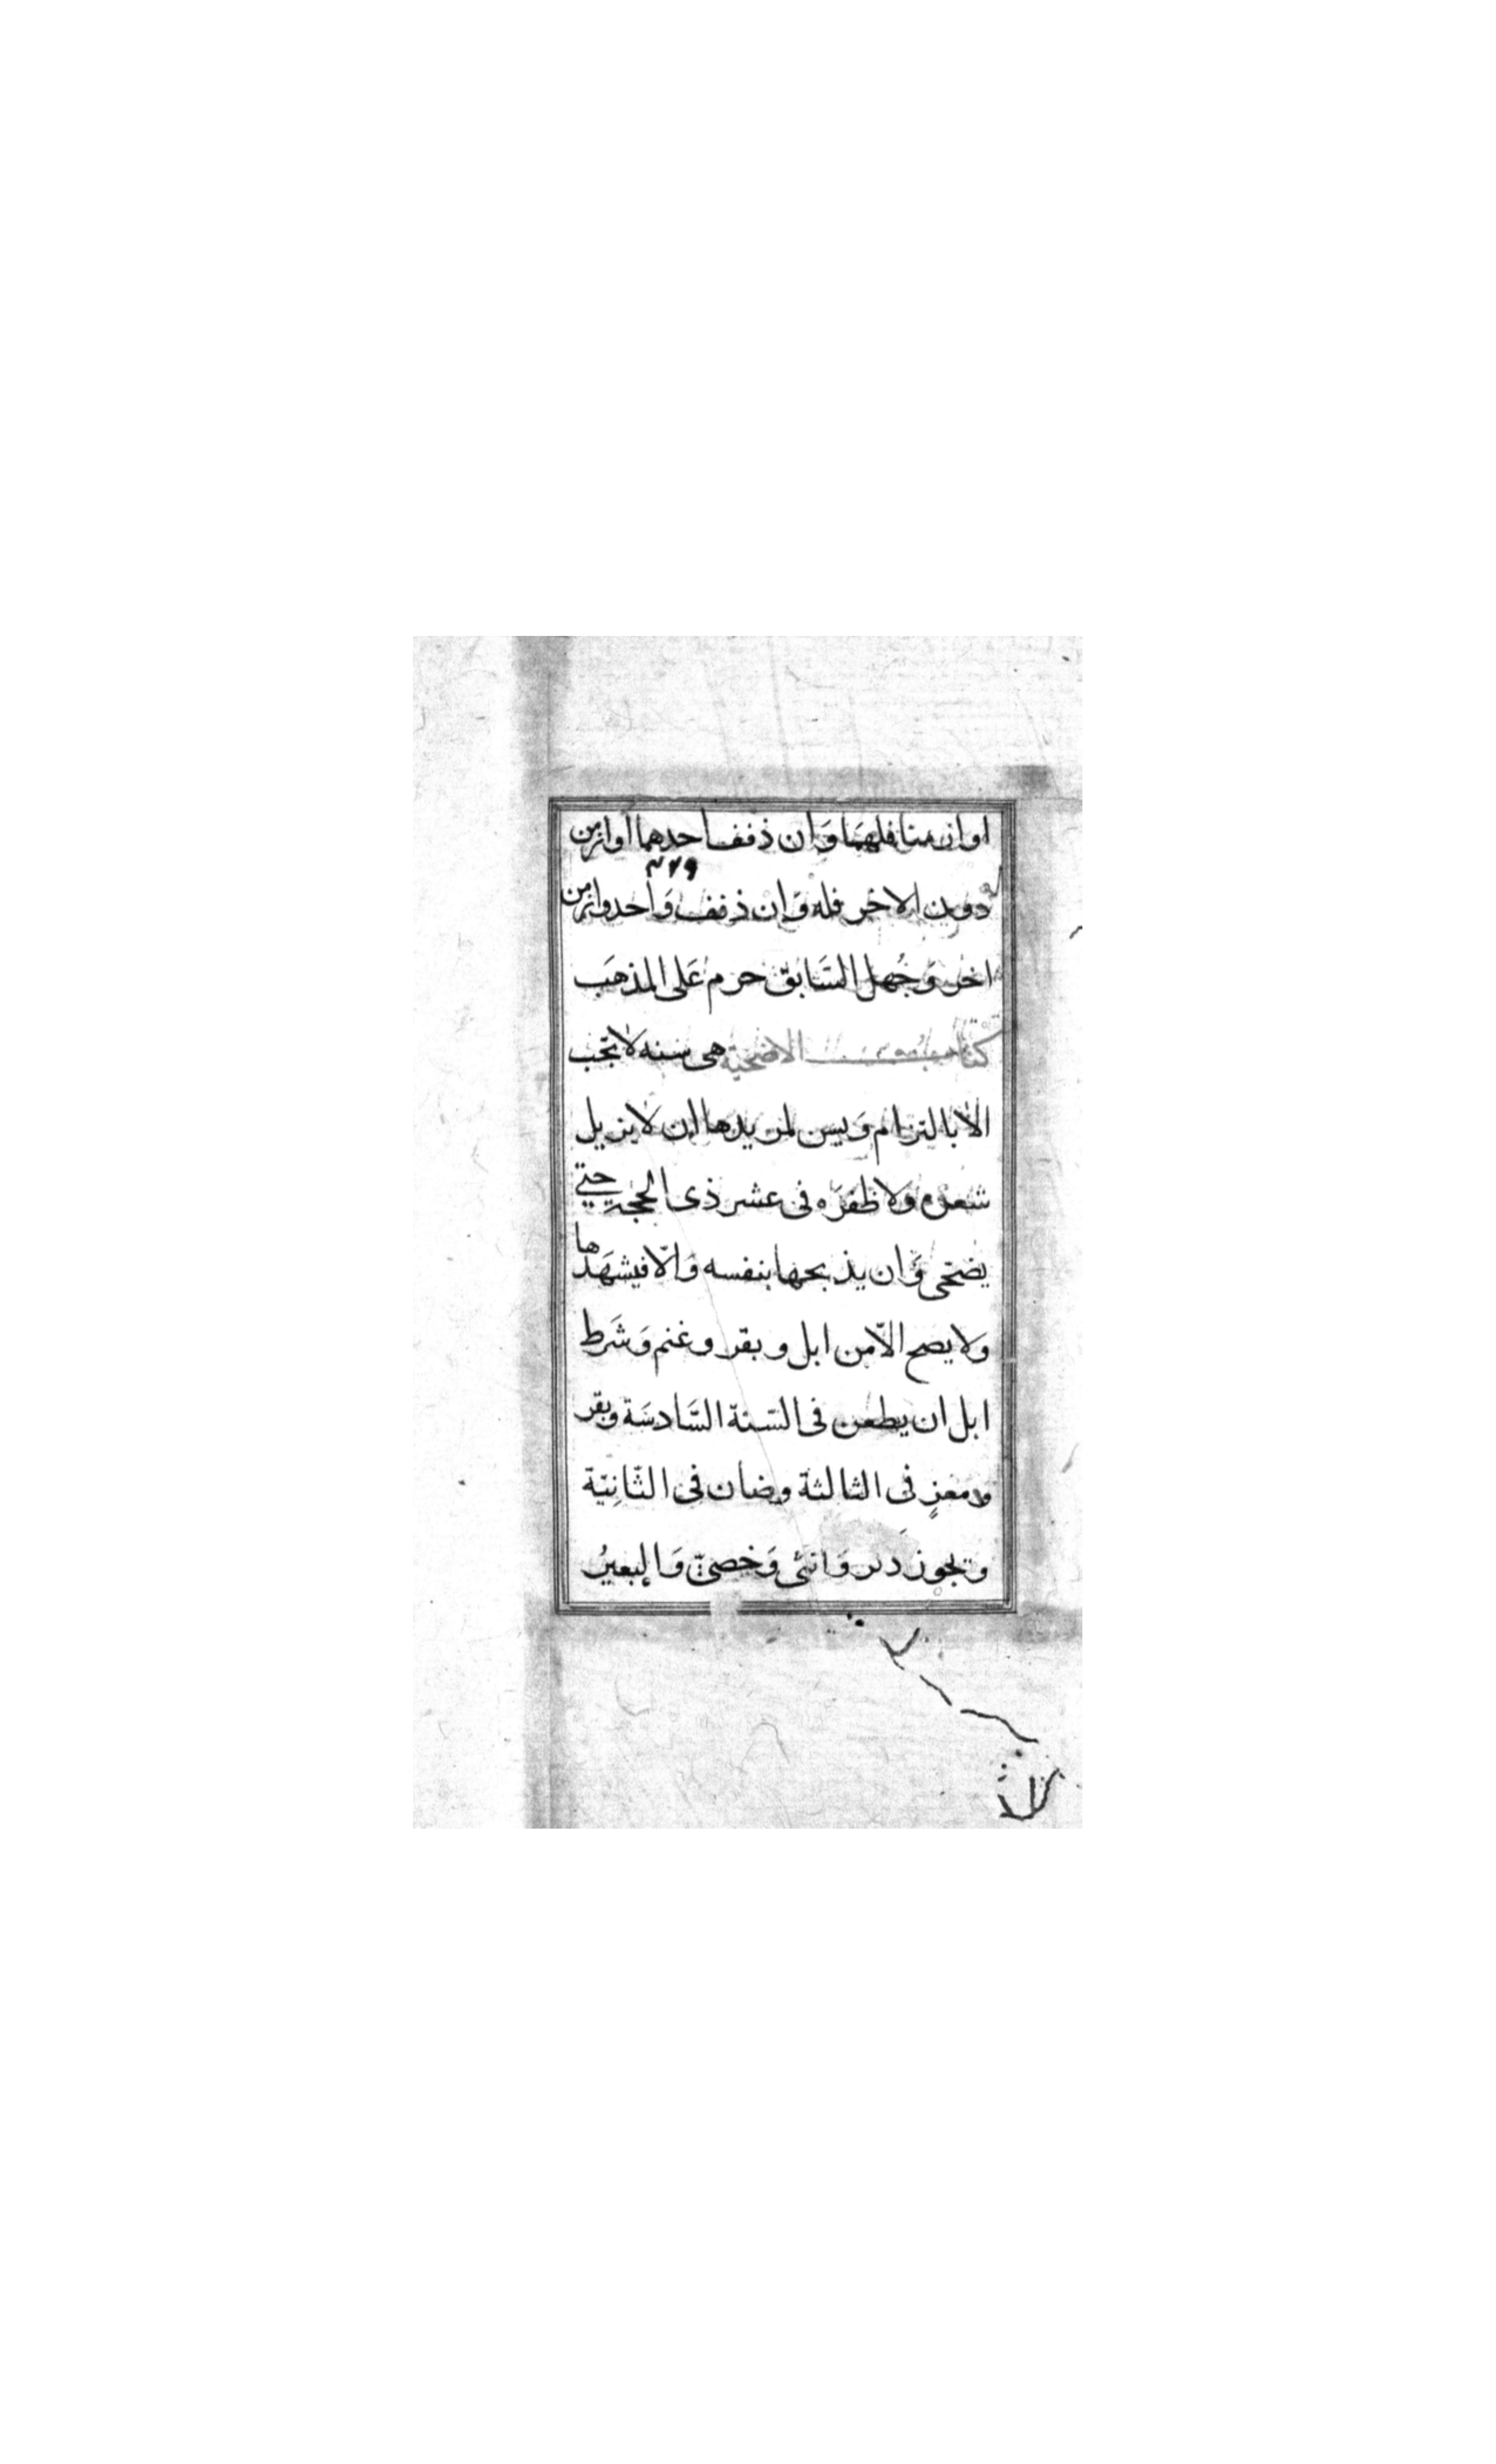 او ازمنا فلهمَا وَان ذفف احدهما او ازمن
دون الاخر فله وَان ذفف وَاحد وازمن
اخر وَجُهل السَّابق حرم عَلى المذهَب
كتاب الاضحية هى سنه لا تجب
الا بالتزام وَيسن لمريدها ان لا يزيل
شعره ولا ظفره فى عشر ذى الحجة حتى
يضحّى وَان يذبحها بنفسه وَالّا فيشهَدها
وَلا يصح الّا من ابل و بقر و غنم وَشَرط
ابل ان يطعن فى السّنة السَّادسَة وبقر
ومعزٍ فى الثالثة وضان فى الثّانِيّة
وتجوز ذكر وَانثى وَخصىّ وَالبعيرُ